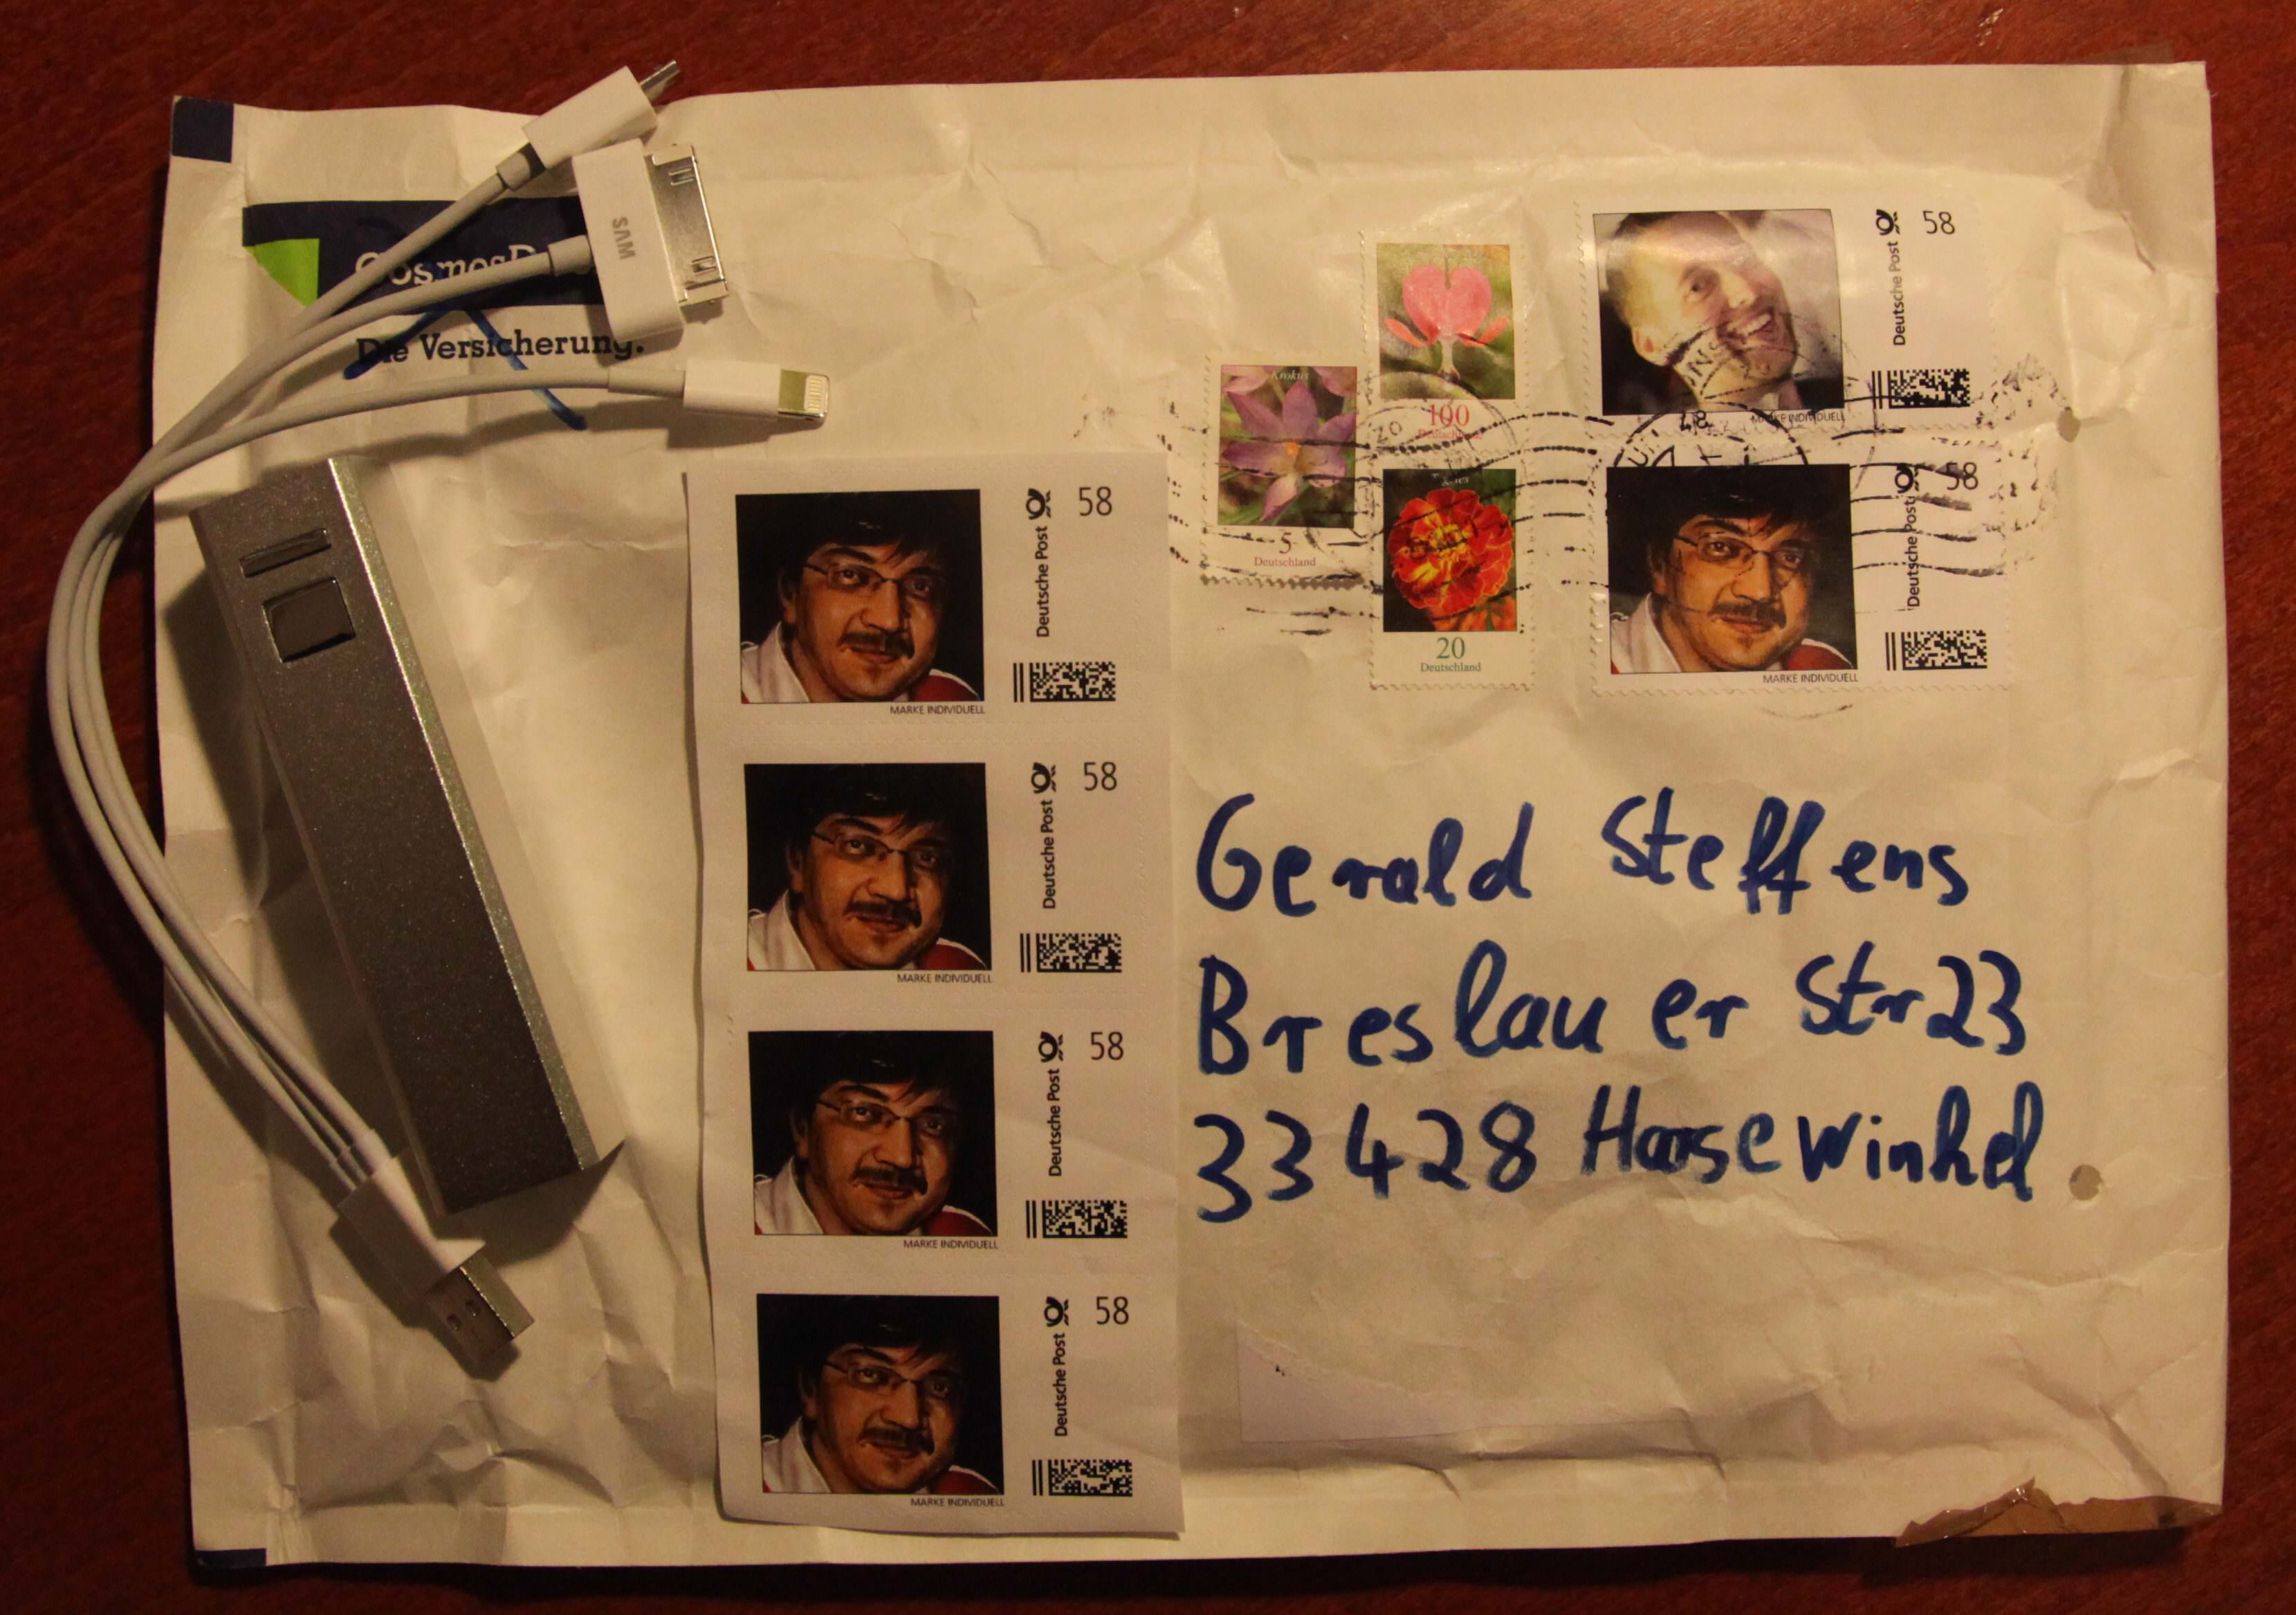 SAMS
Die Versicherung.
Krokus
5
Deutschland
100
Deutschland
20
Deutschland
Deutsche Post
58
MARKE INDIVIDUELL
Deutsche Post
58
MARKE INDIVIDUELL
Deutsche Post
58
MARKE INDIVIDUELL
Deutsche Post
58
MARKE INDIVIDUELL
Deutsche Post
58
MARKE INDIVIDUELL
Deutsche Post
58
MARKE INDIVIDUELL
Gerald Steffens
Breslauer Str 23
33428 Harsewinkel